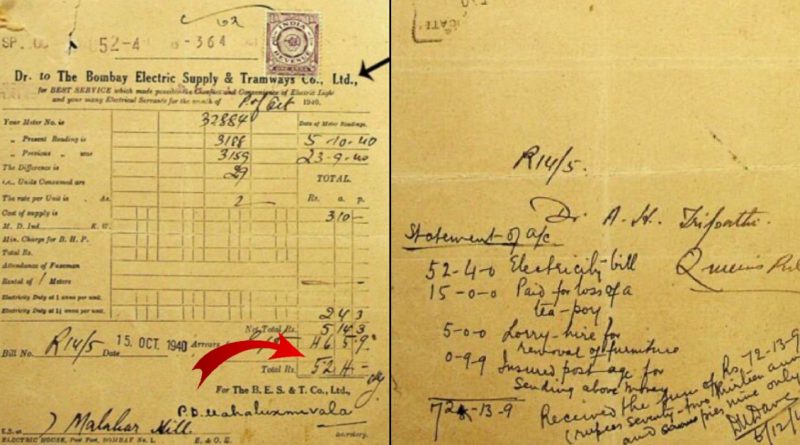 62
SP. 52-4 8-364
INDIA
REVENUE
ONE ANNA
Dr. to The Bombay Electric Supply & Tramways Co., Ltd.,
for BEST SERVICE which made possible the Comfort and Convenience of Electric Light
and your many Electrical Servants for the month of Pt of Oct 1940.
Your Meter No. is 32884 Date of Meter Readings.
„ Present Reading is 3188 5-10-40
„ Previous „ was 3159 23-9-40
The Difference is 29
i.e., Units Consumed are TOTAL.
The rate per Unit is As. 2 Rs. a. p.
Cost of supply is 3 10 -
M. D. Ind. K. W.
Min. Charge for B. H. P.
Total Rs.
Attendance of Fuseman
Rental of 1 Meters
Electricity Duty at 1 anna per unit.
Electricity Duty at 1¼ annas per unit. 2 4 3
Net Total Rs. 5 14 3
Bill No. R14/5 Date 15 OCT 1940 Arrears 46 5 9
Total Rs. 52 4 -
For The B. E. S. & T. Co., Ltd.,
P.D. Mahaluxmivala
Malabar Hill
Secretary.
ELECTRIC HOUSE, Post Fort, BOMBAY No. 1. E. & O. E.
CATE
R14/5.
Dr. A. H. Tripathi
Statement of a/c
Queens
52-4-0 Electricity bill
15-0-0 Paid for loss of a
tea-poy
5-0-0 Lorry-hire for
removal of furniture
0-9-9 Insured postage for
sending above money
72-13-9
Received the sum of Rs. 72-13-9
(rupees seventy-two thirteen annas
and pies nine only
5/12/